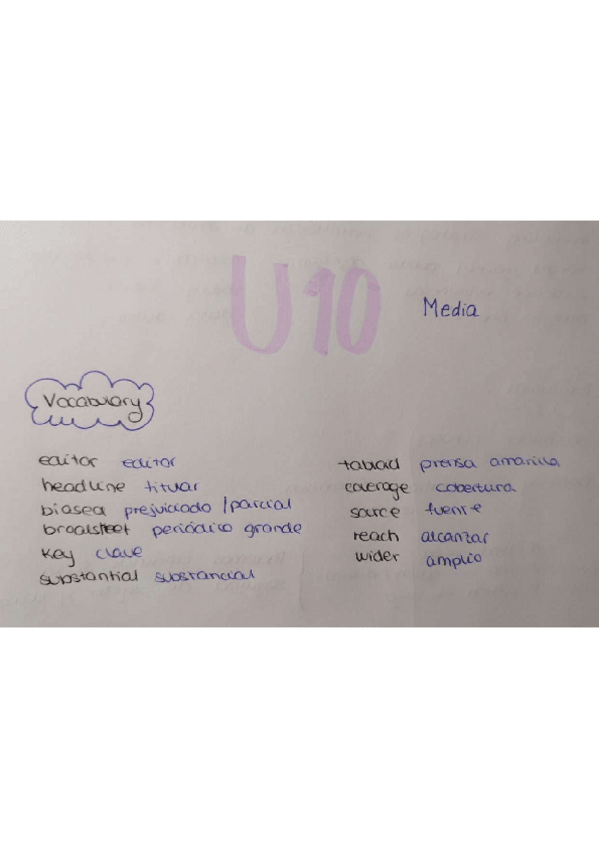 U10
Media
Vocabulary
editor editor
headline titular
biased prejuiciado / parcial
broadsheet periódico grande
key clave
substantial substancial
tabloid prensa amarilla
coverage cobertura
source fuente
reach alcanzar
wider amplio